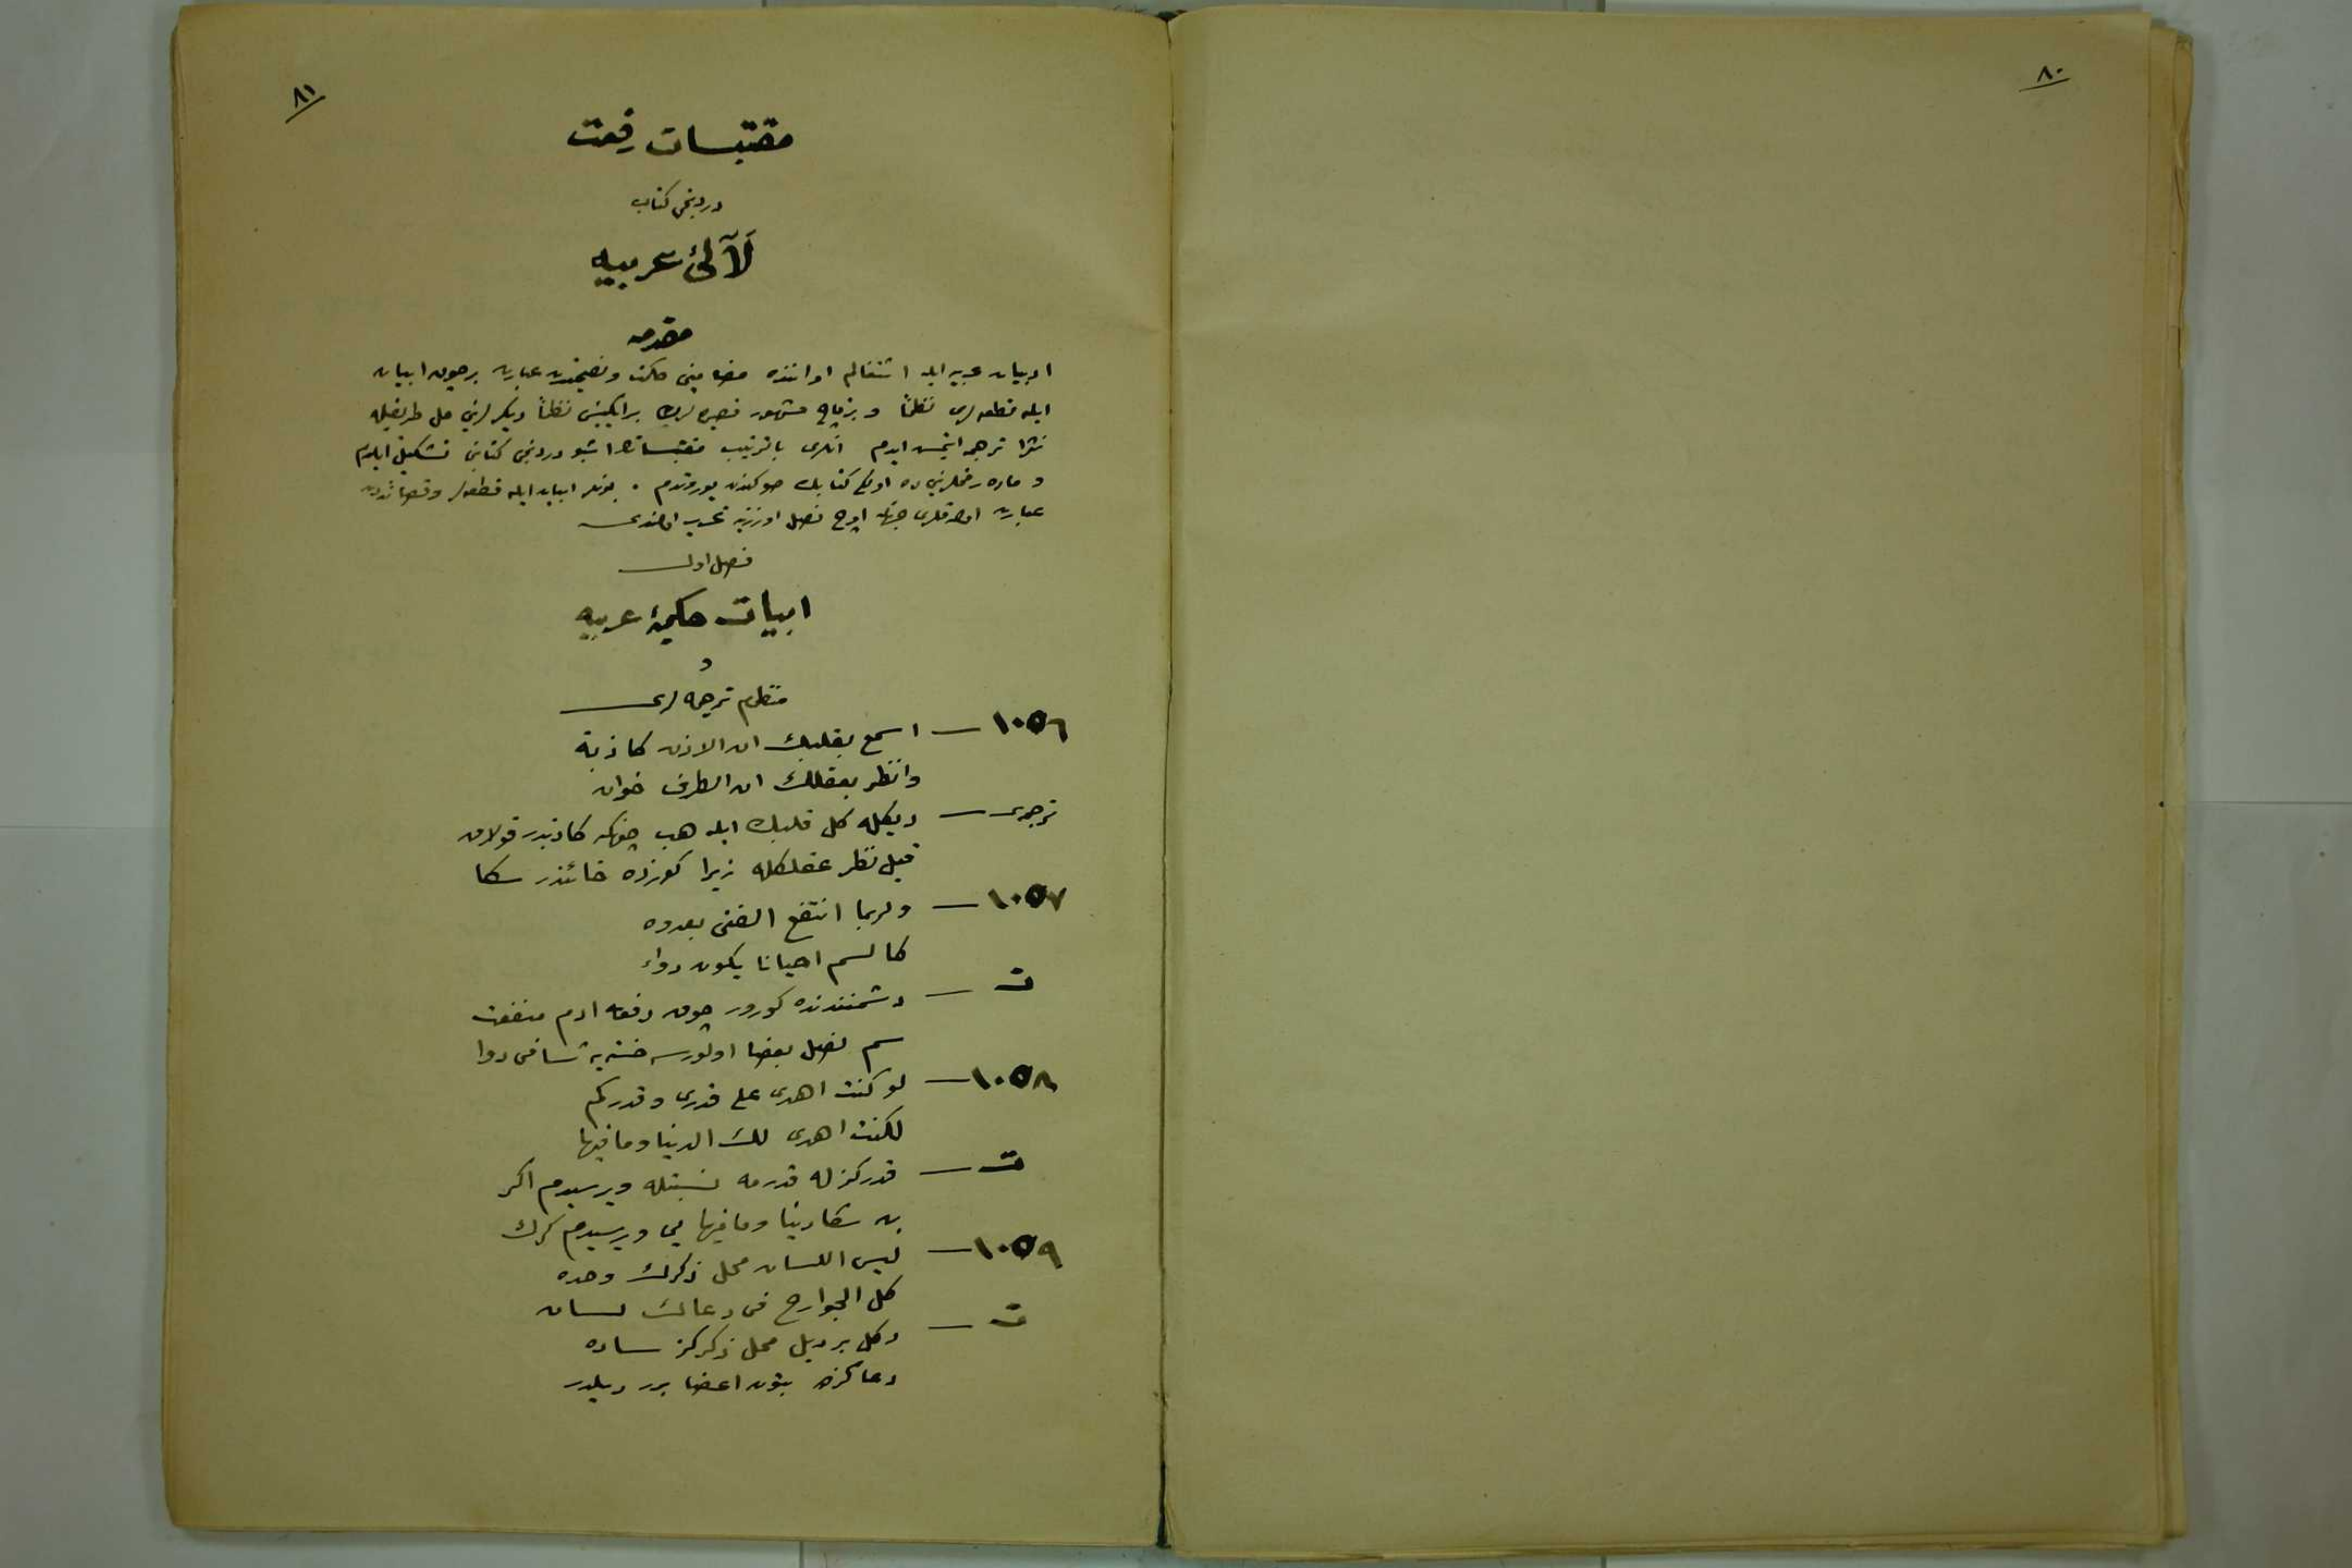 ٨٠
٨١
مقتبسات رفعت
دردنجی كتاب
لآلئ عربیه
مقدمه
ادبیات عربیه ایله اشتغالم اواننده مضامینی حكمت و نصیحتدن عبارت برچوق ابیات
ایله قطعه لری نظماً و برقاچ مشهور قصیده لرك بر ایكیسنی نظماً دیكرلرینی حل طریقیله
نثراً ترجمه ایتمش ایدم انلری بالترتیب مقتبساتك اشبو دردنجی كتابنی تشكیل ایلدم
و ماده رقملرینی ده اولكی كتابك صوكندن یوروتدم . بونلر ابیات ایله قطعه لر و قصائددن
عبارت اولدقلری جهتله اوچ فصل اوزرینه تحریر اولندی
فصل اول
ابیات حكمیۀ عربیه
و
منظوم ترجمه لری
١٠٥٦ — اسمع بقلبك ان الاذن كاذبة
وانظر بعقلك ان الطرف خوان
ترجمه سی — دیكله كل قلبك ایله هب چونكه كاذبدر قولاق
قیل نظر عقلكله زیرا كوزده خائندر سكا
١٠٥٧ — ولربما انتفع الفتى بعدوه
كالسم احيانا يكون دواء
ت — دشمنندنده كورور چوق دفعه ادم منفعت
سم نصل بعضا اولورسه خسته یه شافی دوا
١٠٥٨ — لو كنت اهدى على قدرى وقدركم
لكنت اهدى لك الدنيا وما فيها
ت — قدركزله قدرمه نسبتله ویرسیدم اكر
بن سكا دنیا و مافیها یی ویرسیدم كرك
١٠٥٩ — ليس اللسان محل ذكرك وحده
كل الجوارح فى دعائك لسان
ت — دكل بر دیل محل ذكركز ساده
دعاكزده بتون اعضا برر دیلدر